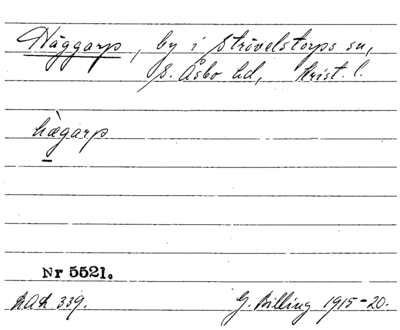 Häggarp, by i Strövelstorps sn,
S. Åsbo hd, Krist. l.
hägarp
Nr 5521.
RAÄ 339. G. Billing 1915-20.